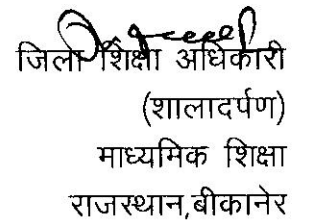 जिला शिक्षा अधिकारी
(शालादर्पण)
माध्यमिक शिक्षा
राजस्थान,बीकानेर